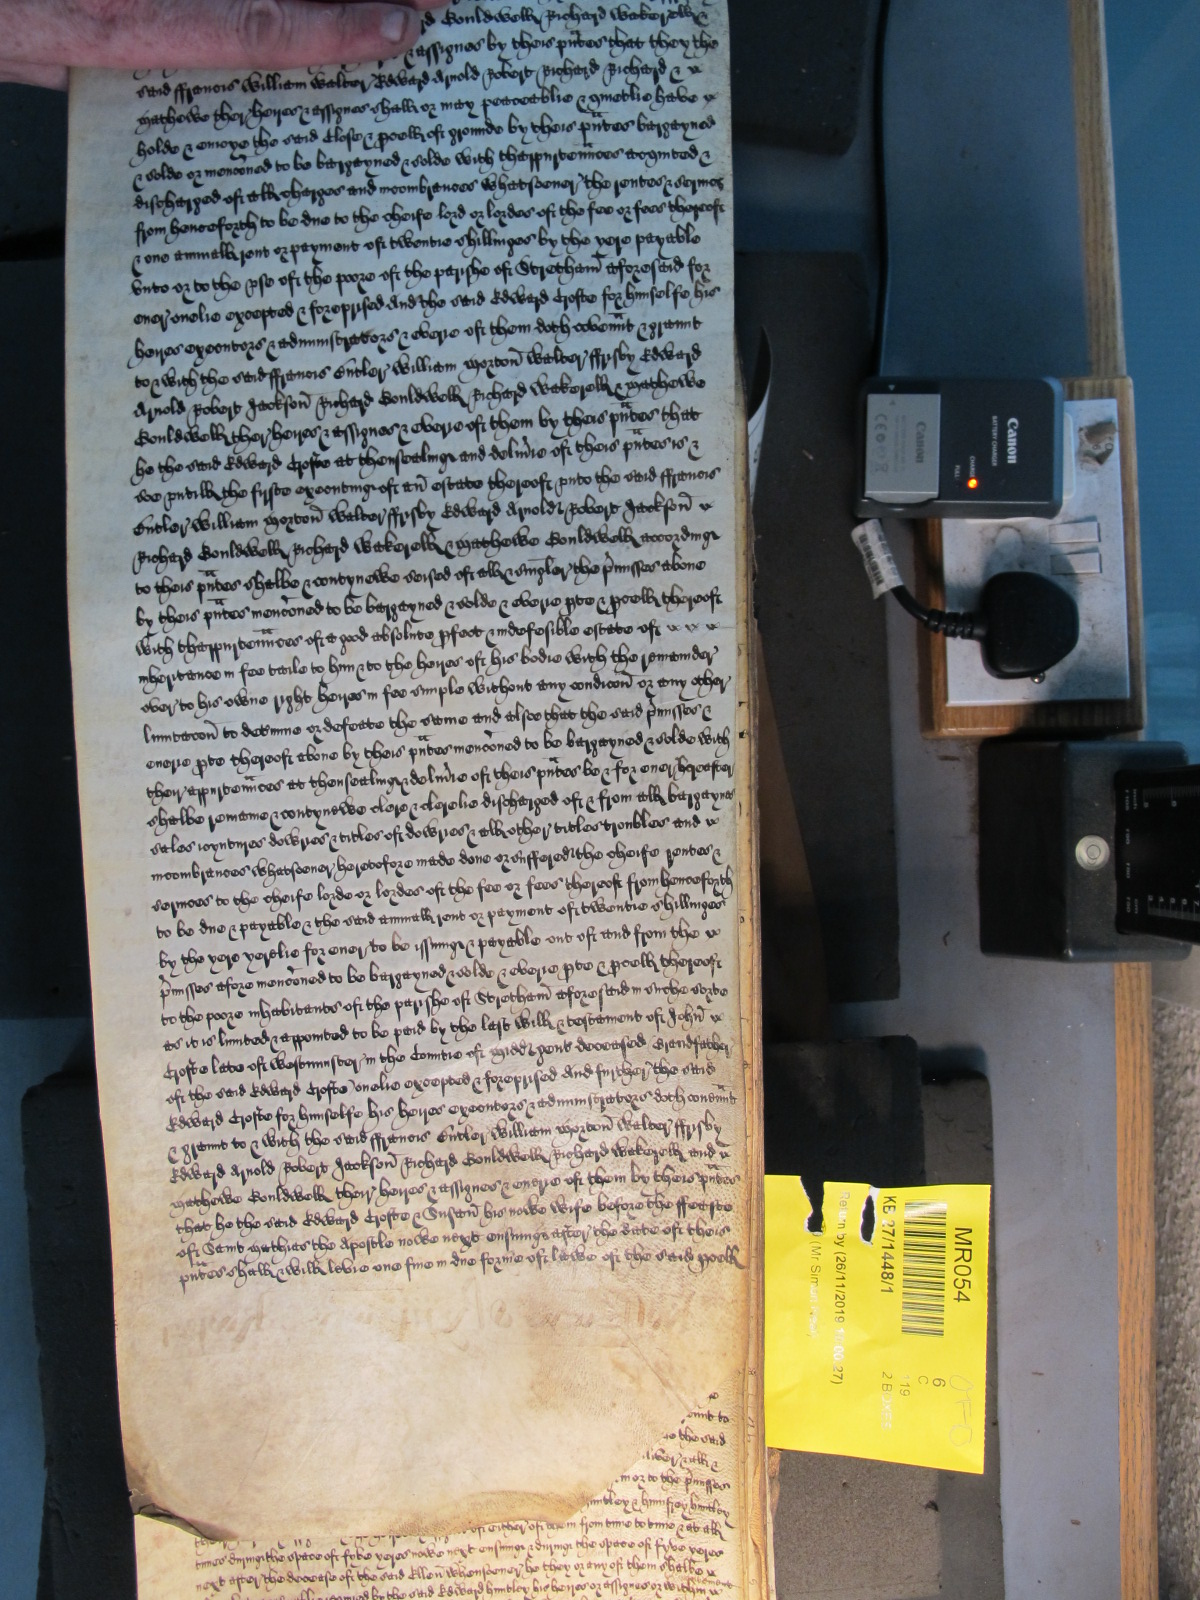 d Bouldwell Richard Wakerell &
& assignes by theis pñtes that they the
said ffrancis William Walter Edward Arnold Robert Richard Richard &
Mathewe ther heires & assignes shall or may peaceablie & quietlie have
holde & enioye the said Close & pcell of grounde by theis pñtes bargayned
& solde or menconed to be bargayned & solde with thappurtennces acquited &
discharged of all charges and incombrances whatsoever the rentes & servics
from henceforth to be due to the cheife lord or lordes of the fee or fees thereof
& one annuall rent or payment of twentie shillinges by the yere payable
vnto or to the vse of the poore of the parishe of Stretham aforesaid for
ever onelie excepted & foreprised And the said Edward Crofte for himselfe his
heires executors & administrators & everie of them doth covennt & graunt
to & with the said ffrancis Cutler William Morton Walter ffrisby Edward
Arnold Robert Jackson Richard Bouldwell Richard Wakerell & Mathewe
Bouldwell ther heires & assignes & everie of them by theis pñtes that
he the said Edward Crofte at thensealing and deliv'ie of theis pñtes is &
soe vntill the firste executing of an estate thereof vnto the said ffrancis
Cutler William Morton Walter ffrisby Edward Arnold Robert Jackson
Richard Bouldwell Richard Wakerell & Mathewe Bouldwell according
to theis pñtes shalbe & contynewe seised of all & singler the p'misses above
by theis pñtes menc'oned to be bargayned & solde & everie pte & pcell thereof
with thappurtennces of a good absolute pfect & indefesible estate of
inheritance in fee taile to him & to the heires of his bodie with the remainder
over to his owne right heires in fee simple without any condicon or any other
limitacon to determine or defeate the same and alsoe that the said p'misses &
everie pte thereof above by theis pñtes menc'oned to be bargayned & solde with
their appurtennces at thensealing & deliv'ie of theis pñtes be & for ever hereafter
shalbe remaine & contynewe clere & clerelie discharged of & from all bargaynes
sales ioyntures dowries & titles of dowries & all other titles troubles and
incombrances whatsoever heretofore made done or suffered the cheife rentes &
services to the cheife lorde or lordes of the fee or fees thereof from henceforth
to be due & payable & the said annuall rent or payment of twentie shillinges
by the yere yerelie for ever to be issuing & payable out of and from the
p'misses afore menc'oned to be bargayned & solde & everie pte & pcell thereof
to the poore inhabitants of the parishe of Stretham aforesaid in suche sorte
as it is limited & appointed to be paid by the last will & testament of John
Crofte late of Westminster in the Countie of Midd gent deceased Grandfather
of the said Edward Crofte onelie excepted & foreprised And further the said
Edward Crofte for himselfe his heires executors & administrators doth covennt
& graunt to & with the said ffrancis Cutler William Morton Walter ffrisby
Edward Arnold Robert Jackson Richard Bouldwell Richard Wakerell and
Mathewe Bouldwell their heires & assignes & everie of them by theis pñtes
that he the said Edward Crofte & Susan his nowe wife before the ffeaste
of Saint Mathias the Apostle nowe next ensuinge after the date of theis
pñtes shall & will levie one fine in due forme of lawe of the said pcell
to the said
or to the p'misses
Huntley & humfrey huntley
of either of them from time to time & at all
times during the space of fyve yeres nowe next ensuing & during the space of fyve yeres
next after the decease of the said Ellen whensoever he they or any of them shalbe
by the said Edward huntley his heires or assignes or within
Canon
BATTERY CHARGER
CHARGE
FULL
Canon
MR054
KE 27/1448/1
Return by (26/11/2019
(Mr Simon
6
C
19
2 BOXES